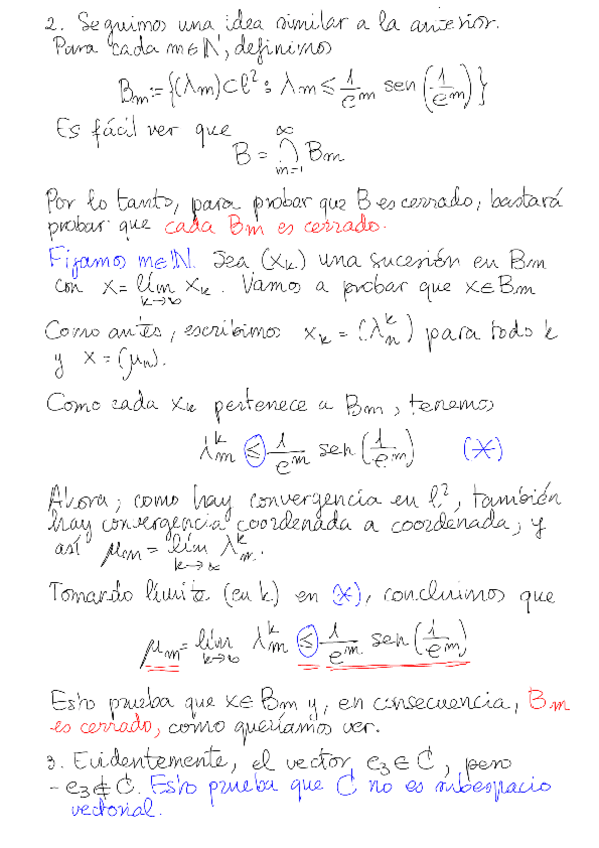 2. Seguimos una idea similar a la anterior.
Para cada m∈ℕ, definimos
Bm := {(λm)⊂ℓ² : λm ≤ 1/e^m sen(1/e^m)}
Es fácil ver que
B = ⋂_{m=1}^∞ Bm
Por lo tanto, para probar que B es cerrado, bastará
probar que cada Bm es cerrado.
Fijamos m∈ℕ. Sea (xk) una sucesión en Bm
con x = lím_{k→∞} xk. Vamos a probar que x∈Bm
Como antes, escribimos xk = (λn^k) para todo k
y x = (μn).
Como cada xk pertenece a Bm, tenemos
λm^k ≤ 1/e^m sen(1/e^m) (*)
Ahora, como hay convergencia en ℓ², también
hay convergencia coordenada a coordenada, y
así μm = lím_{k→∞} λm^k.
Tomando límite (en k) en (*), concluimos que
μm = lím_{k→∞} λm^k ≤ 1/e^m sen(1/e^m)
Esto prueba que x∈Bm y, en consecuencia, Bm
es cerrado, como queríamos ver.
3. Evidentemente, el vector e3 ∈ C, pero
-e3 ∉ C. Esto prueba que C no es subespacio
vectorial.